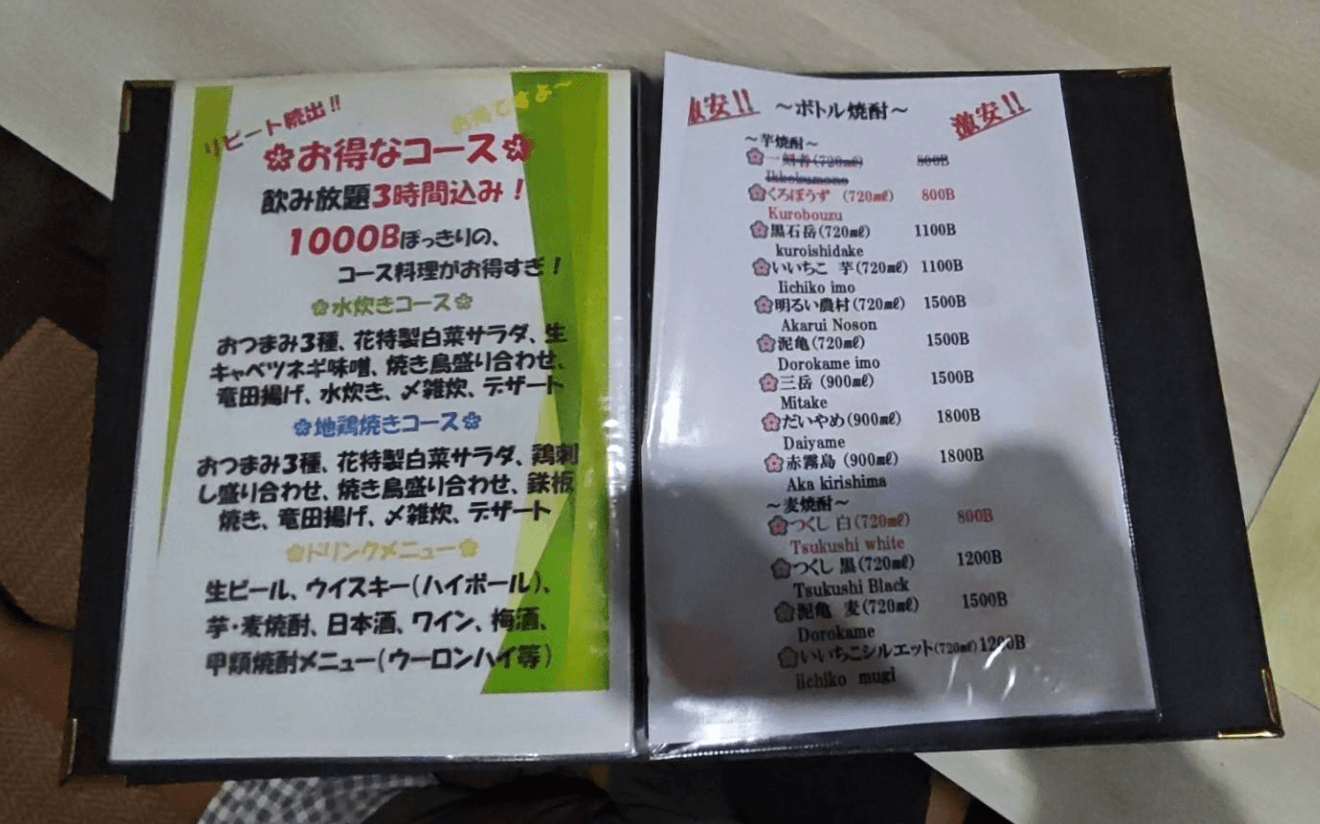 リピート続出!!
お得ですよ～
お得なコース
飲み放題3時間込み！
1000Bぽっきりの、
コース料理がお得すぎ！
水炊きコース
おつまみ3種、花特製白菜サラダ、生
キャベツネギ味噌、焼き鳥盛り合わせ、
竜田揚げ、水炊き、〆雑炊、デザート
地鶏焼きコース
おつまみ3種、花特製白菜サラダ、鶏刺
し盛り合わせ、焼き鳥盛り合わせ、鉄板
焼き、竜田揚げ、〆雑炊、デザート
ドリンクメニュー
生ビール、ウイスキー(ハイボール)、
芋・麦焼酎、日本酒、ワイン、梅酒、
甲類焼酎メニュー(ウーロンハイ等)
激安!!
～ボトル焼酎～
激安!!
～芋焼酎～
一刻者(720㎖) 800B
Ikkokumono
くろぼうず (720㎖) 800B
Kurobouzu
黒石岳(720㎖) 1100B
kuroishidake
いいちこ 芋(720㎖) 1100B
Iichiko imo
明るい農村(720㎖) 1500B
Akarui Noson
泥亀(720㎖) 1500B
Dorokame imo
三岳 (900㎖) 1500B
Mitake
だいやめ(900㎖) 1800B
Daiyame
赤霧島 (900㎖) 1800B
Aka kirishima
～麦焼酎～
つくし 白(720㎖) 800B
Tsukushi white
つくし 黒(720㎖) 1200B
Tsukushi Black
泥亀 麦(720㎖) 1500B
Dorokame
いいちこシルエット(720㎖) 1200B
iichiko mugi